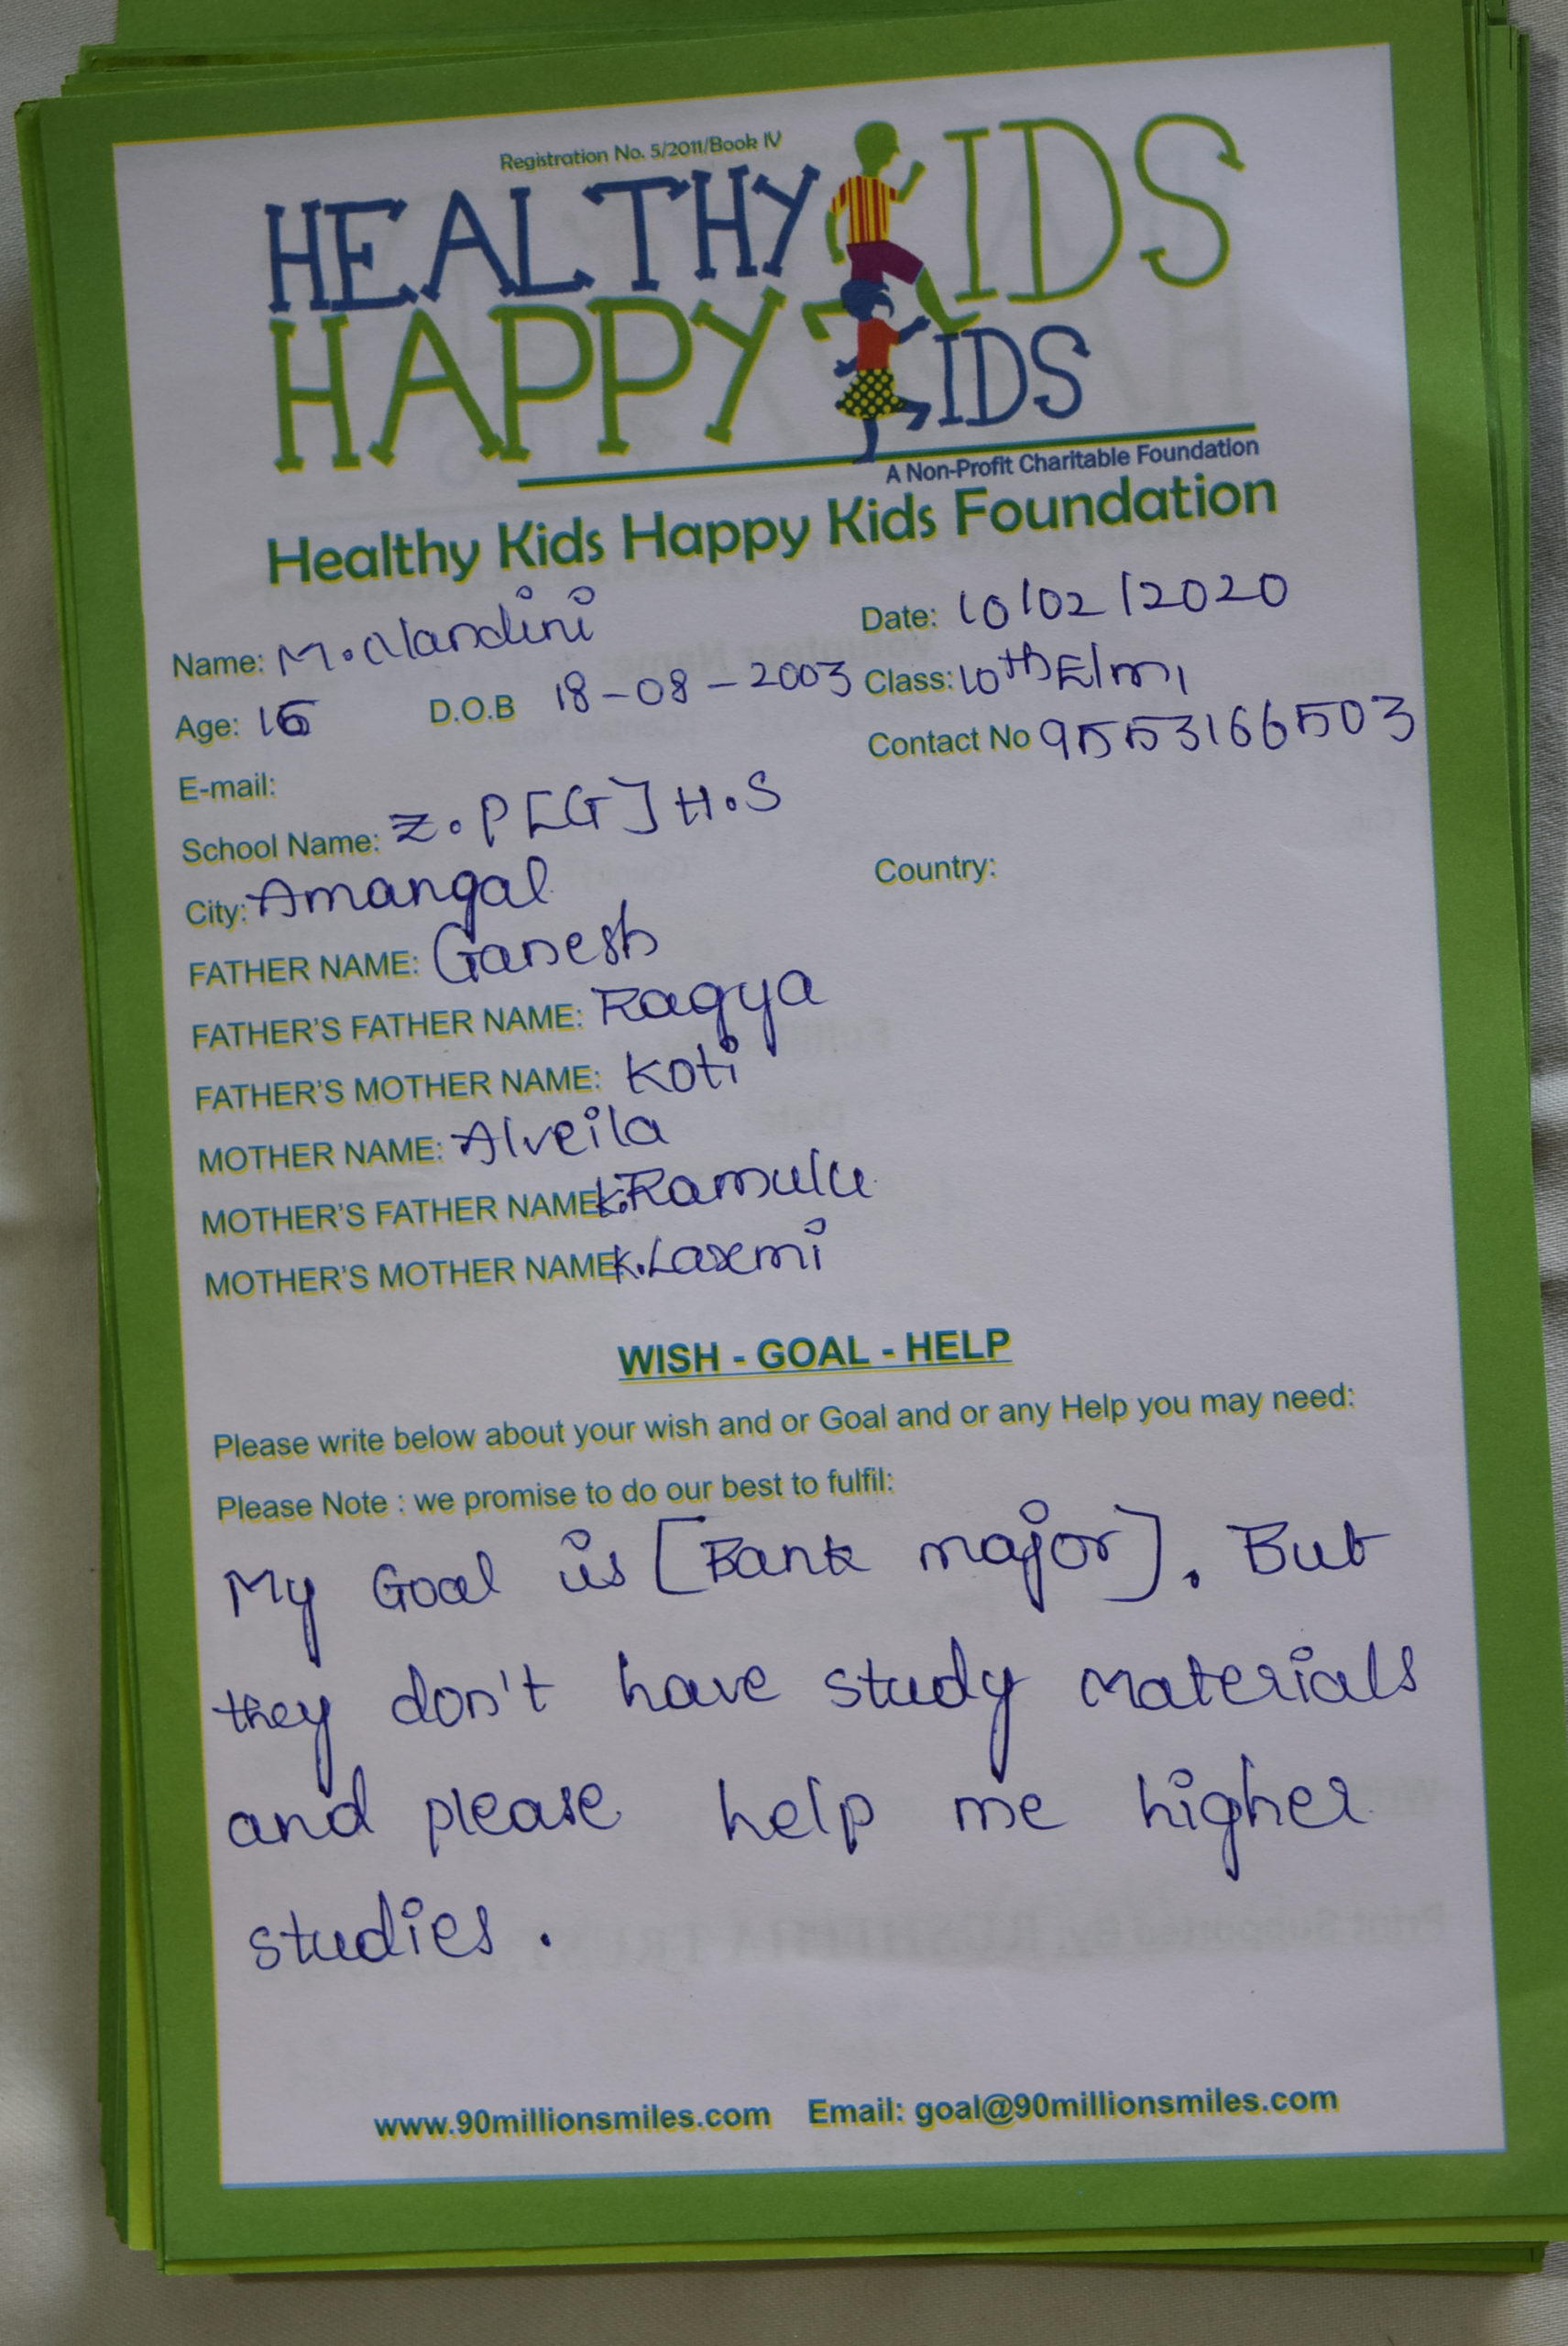 Registration No. 5/2011/Book IV
HEALTHY KIDS
HAPPY KIDS
A Non-Profit Charitable Foundation
Healthy Kids Happy Kids Foundation
Name: M. Nandini Date: 10/02/2020
Age: 16 D.O.B 18-08-2003 Class: 10th E/m,
E-mail: Contact No 9553166503
School Name: Z.P[G]H.S
City: Amangal Country:
FATHER NAME: Ganesh
FATHER'S FATHER NAME: Ragya
FATHER'S MOTHER NAME: Koti
MOTHER NAME: Alveila
MOTHER'S FATHER NAME: K.Ramulu
MOTHER'S MOTHER NAME: K.Laxmi
WISH - GOAL - HELP
Please write below about your wish and or Goal and or any Help you may need:
Please Note : we promise to do our best to fulfil:
My Goal is [Bank major]. But
they don't have study materials
and please help me higher
studies.
www.90millionsmiles.com Email: goal@90millionsmiles.com